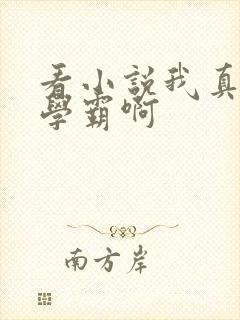 看小説我真
學霸啊
南方岸